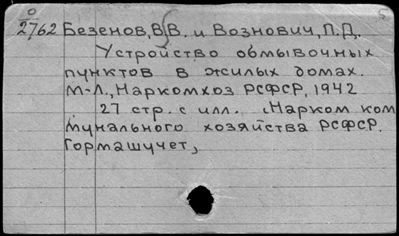 0
2762 Безенов, В.В. и Вознович, П.Д.
Устройство обмывочных
пунктов в жилых домах.
М-Л., Наркомхоз РСФСР, 1942
27 стр. с илл. (Нарком ком
мунального хозяйства РСФСР.
Гормашучет)